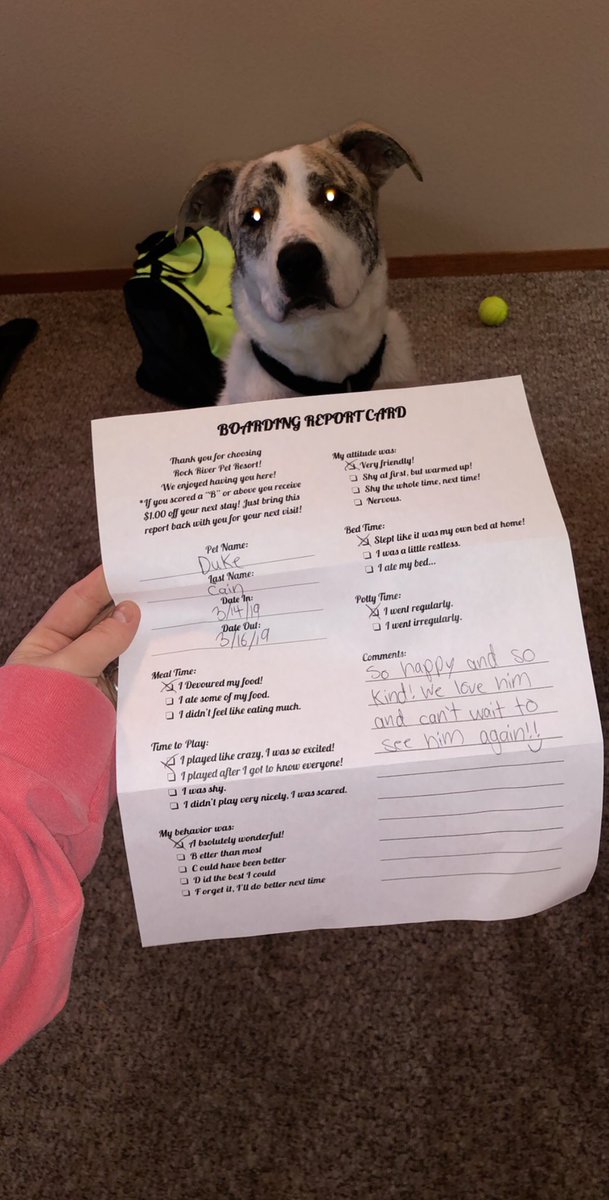 BOARDING REPORT CARD
Thank you for choosing
Rock River Pet Resort!
We enjoyed having you here!
*If you scored a "B" or above you receive
$1.00 off your next stay! Just bring this
report back with you for your next visit!
Pet Name:
Duke
Last Name:
Cain
Date In:
3/14/19
Date Out:
3/16/19
Meal Time:
I Devoured my food!
I ate some of my food.
I didn't feel like eating much.
Time to Play:
I played like crazy, I was so excited!
I played after I got to know everyone!
I was shy.
I didn't play very nicely, I was scared.
My behavior was:
A bsolutely wonderful!
B etter than most
C ould have been better
D id the best I could
F orget it, I'll do better next time
My attitude was:
Very friendly!
Shy at first, but warmed up!
Shy the whole time, next time!
Nervous.
Bed Time:
Slept like it was my own bed at home!
I was a little restless.
I ate my bed...
Potty Time:
I went regularly.
I went irregularly.
Comments:
So happy and so
kind! We love him
and can't wait to
see him again!!